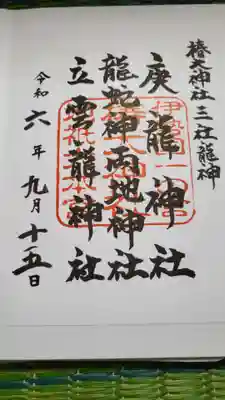 椿大神社三社龍神
庚龍神社
龍蛇神両地神社
立雲龍神社
令和六年九月十五日